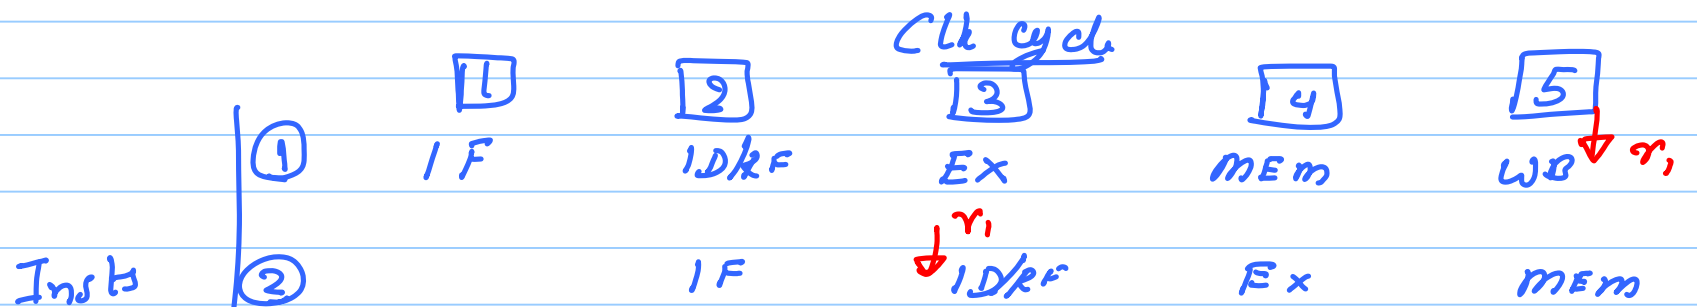 Clk cycle
1 2 3 4 5
1 IF ID/RF Ex MEM WB r1
r1
Insts 2 IF ID/RF Ex MEM